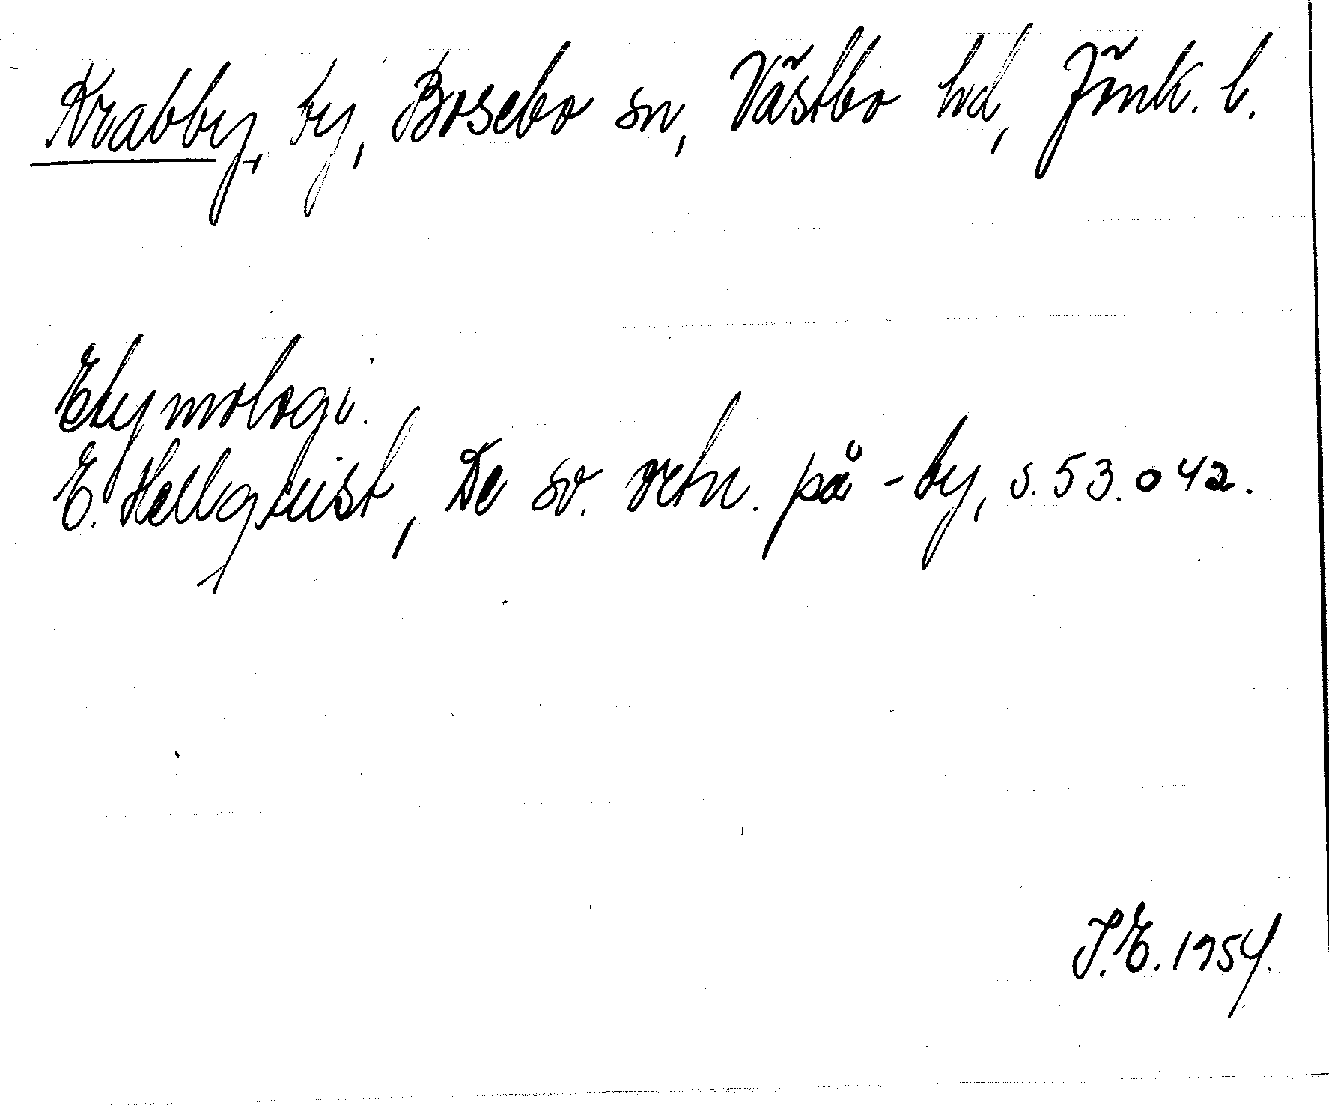 Krabby, by, Bosebo sn, Västbo hd, Jönk. l.
Etymologi.
E. Hellquist, De sv. ortn. på -by, s. 53. o 42.
S.E. 1954.